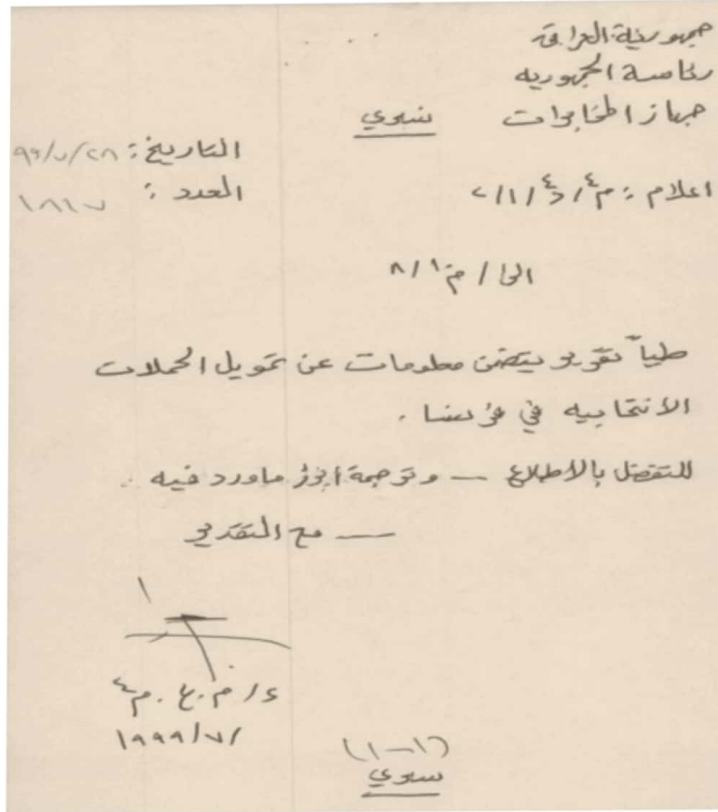 جمهورية العراق
رئاسة الجمهورية
جهاز المخابرات
سري
التاريخ: ٩٩/٧/٢٨
العدد: ١٨٦٧
اعلام: م٤/د٤/١/٢
الى/م١/٨
طياً تقرير يتضمن معلومات عن تمويل الحملات
الانتخابيه في فرنسا.
للتفضل بالاطلاع – وترجمة ابرز ماورد فيه.
– مع التقدير
ع/م.ع.م٤
/١٩٩٩/٧
(١-١)
سري